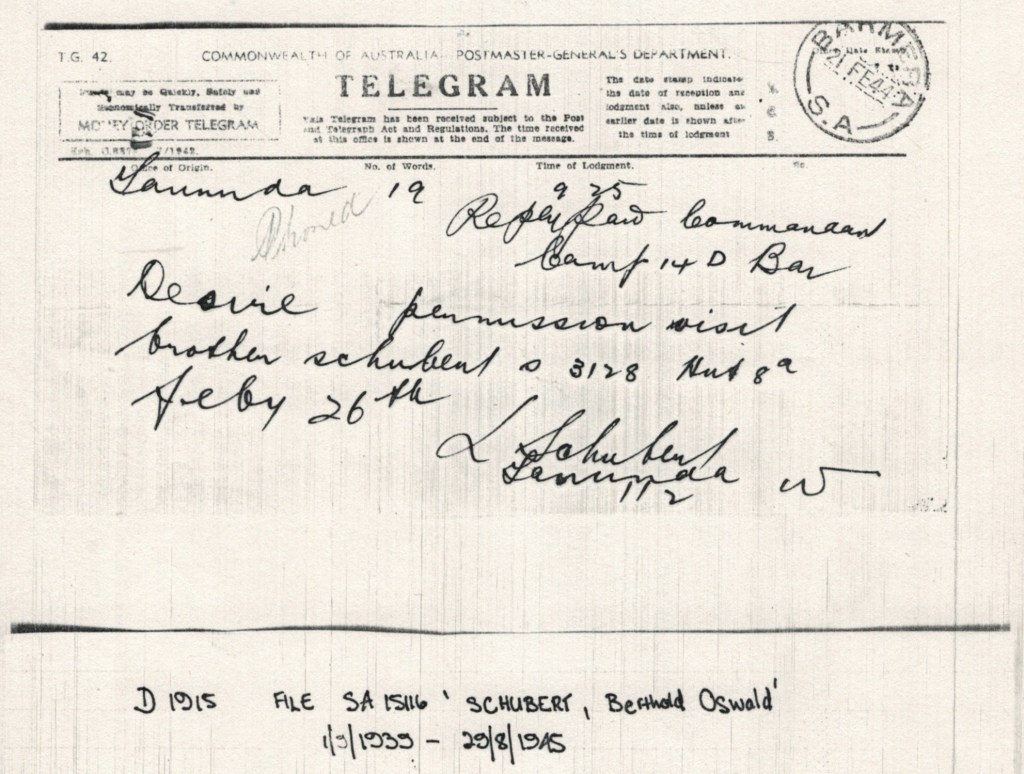 T.G. 42.
COMMONWEALTH OF AUSTRALIA—POSTMASTER-GENERAL'S DEPARTMENT.
TELEGRAM
may be Quickly, Safely and
Economically Transferred by
MONEY ORDER TELEGRAM
This Telegram has been received subject to the Post
and Telegraph Act and Regulations. The time received
at this office is shown at the end of the message.
The date stamp indicates
the date of reception and
lodgment also, unless an
earlier date is shown after
the time of lodgment
Office Date Stamp
BARMERA
21 FE44
S.A
Office of Origin.
No. of Words.
Time of Lodgment.
Tanunda 19 9 25
Phoned
Reply Paid Commandant
Camp 14 D Bar
Desire permission visit
brother schubert s 3128 Hut 8a
feby 26th
L Schubert
Tanunda W
112
D 1915 FILE SA 15116 'SCHUBERT, Berthold Oswald'
1/9/1939 - 29/8/1945